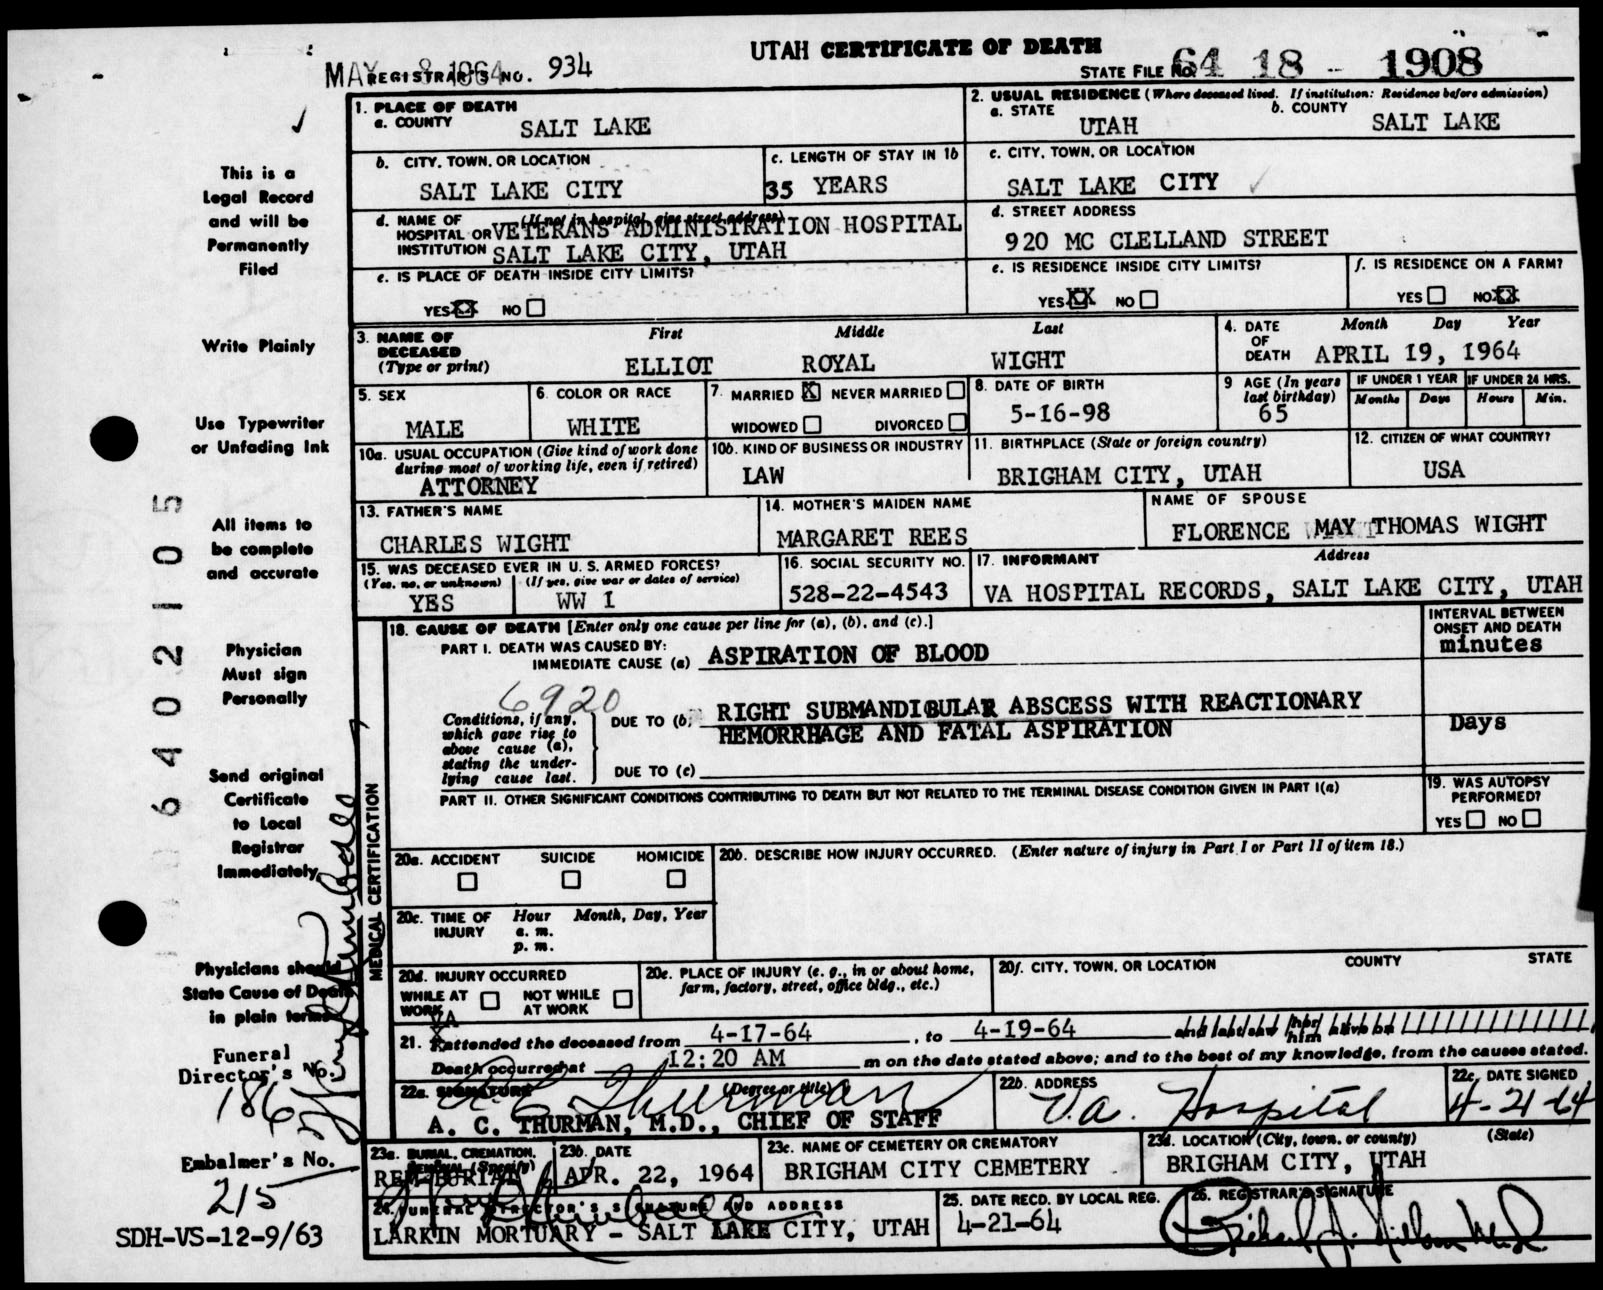 UTAH CERTIFICATE OF DEATH
MAY 8 1964
REGISTRAR'S NO. 934
STATE FILE NO. 64 18 - 1908
1. PLACE OF DEATH
a. COUNTY SALT LAKE
2. USUAL RESIDENCE (Where deceased lived. If institution: Residence before admission)
a. STATE UTAH b. COUNTY SALT LAKE
b. CITY, TOWN, OR LOCATION SALT LAKE CITY
c. LENGTH OF STAY IN 1b 35 YEARS
c. CITY, TOWN, OR LOCATION SALT LAKE CITY
d. NAME OF HOSPITAL OR INSTITUTION (If not in hospital, give street address)
VETERANS ADMINISTRATION HOSPITAL
SALT LAKE CITY, UTAH
d. STREET ADDRESS
920 MC CLELLAND STREET
e. IS PLACE OF DEATH INSIDE CITY LIMITS?
YES XX NO
e. IS RESIDENCE INSIDE CITY LIMITS?
YES XX NO
f. IS RESIDENCE ON A FARM?
YES NO XX
3. NAME OF DECEASED (Type or print)
First Middle Last
ELLIOT ROYAL WIGHT
4. DATE OF DEATH Month Day Year
APRIL 19, 1964
5. SEX MALE
6. COLOR OR RACE WHITE
7. MARRIED X NEVER MARRIED
WIDOWED DIVORCED
8. DATE OF BIRTH
5-16-98
9 AGE (In years last birthday)
65
IF UNDER 1 YEAR Months Days
IF UNDER 24 HRS. Hours Min.
10a. USUAL OCCUPATION (Give kind of work done during most of working life, even if retired)
ATTORNEY
10b. KIND OF BUSINESS OR INDUSTRY
LAW
11. BIRTHPLACE (State or foreign country)
BRIGHAM CITY, UTAH
12. CITIZEN OF WHAT COUNTRY?
USA
13. FATHER'S NAME
CHARLES WIGHT
14. MOTHER'S MAIDEN NAME
MARGARET REES
NAME OF SPOUSE
FLORENCE MAY THOMAS WIGHT
15. WAS DECEASED EVER IN U. S. ARMED FORCES?
(Yes, no, or unknown) (If yes, give war or dates of service)
YES WW I
16. SOCIAL SECURITY NO.
528-22-4543
17. INFORMANT Address
VA HOSPITAL RECORDS, SALT LAKE CITY, UTAH
MEDICAL CERTIFICATION
18. CAUSE OF DEATH [Enter only one cause per line for (a), (b), and (c).]
INTERVAL BETWEEN ONSET AND DEATH
PART I. DEATH WAS CAUSED BY:
IMMEDIATE CAUSE (a) ASPIRATION OF BLOOD minutes
6920
Conditions, if any, which gave rise to above cause (a), stating the underlying cause last.
DUE TO (b) RIGHT SUBMANDIBULAR ABSCESS WITH REACTIONARY
HEMORRHAGE AND FATAL ASPIRATION Days
DUE TO (c)
PART II. OTHER SIGNIFICANT CONDITIONS CONTRIBUTING TO DEATH BUT NOT RELATED TO THE TERMINAL DISEASE CONDITION GIVEN IN PART I(a)
19. WAS AUTOPSY PERFORMED?
YES NO
20a. ACCIDENT SUICIDE HOMICIDE
20b. DESCRIBE HOW INJURY OCCURRED. (Enter nature of injury in Part I or Part II of item 18.)
20c. TIME OF INJURY Hour Month, Day, Year
a. m.
p. m.
20d. INJURY OCCURRED
WHILE AT WORK NOT WHILE AT WORK
20e. PLACE OF INJURY (e. g., in or about home, farm, factory, street, office bldg., etc.)
20f. CITY, TOWN, OR LOCATION COUNTY STATE
VA
21. X attended the deceased from 4-17-64, to 4-19-64 and last saw her him alive on
Death occurred at 12:20 AM m on the date stated above; and to the best of my knowledge, from the causes stated.
22a. SIGNATURE (Degree or title)
A C Thurman
A. C. THURMAN, M.D., CHIEF OF STAFF
22b. ADDRESS
V.A. Hospital
22c. DATE SIGNED
4-21-64
23a. BURIAL, CREMATION, REMOVAL (Specify)
REM-BURIAL
23b. DATE
APR. 22, 1964
23c. NAME OF CEMETERY OR CREMATORY
BRIGHAM CITY CEMETERY
23d. LOCATION (City, town, or county) (State)
BRIGHAM CITY, UTAH
24. FUNERAL DIRECTOR'S SIGNATURE AND ADDRESS
LARKIN MORTUARY - SALT LAKE CITY, UTAH
25. DATE RECD. BY LOCAL REG.
4-21-64
26. REGISTRAR'S SIGNATURE
This is a
Legal Record
and will be
Permanently
Filed
Write Plainly
Use Typewriter
or Unfading Ink
All items to
be complete
and accurate
Physician
Must sign
Personally
Send original
Certificate
to Local
Registrar
Immediately
Physicians should
State Cause of Death
in plain terms
Funeral
Director's No.
186
Embalmer's No.
215
SDH-VS-12-9/63
6402105